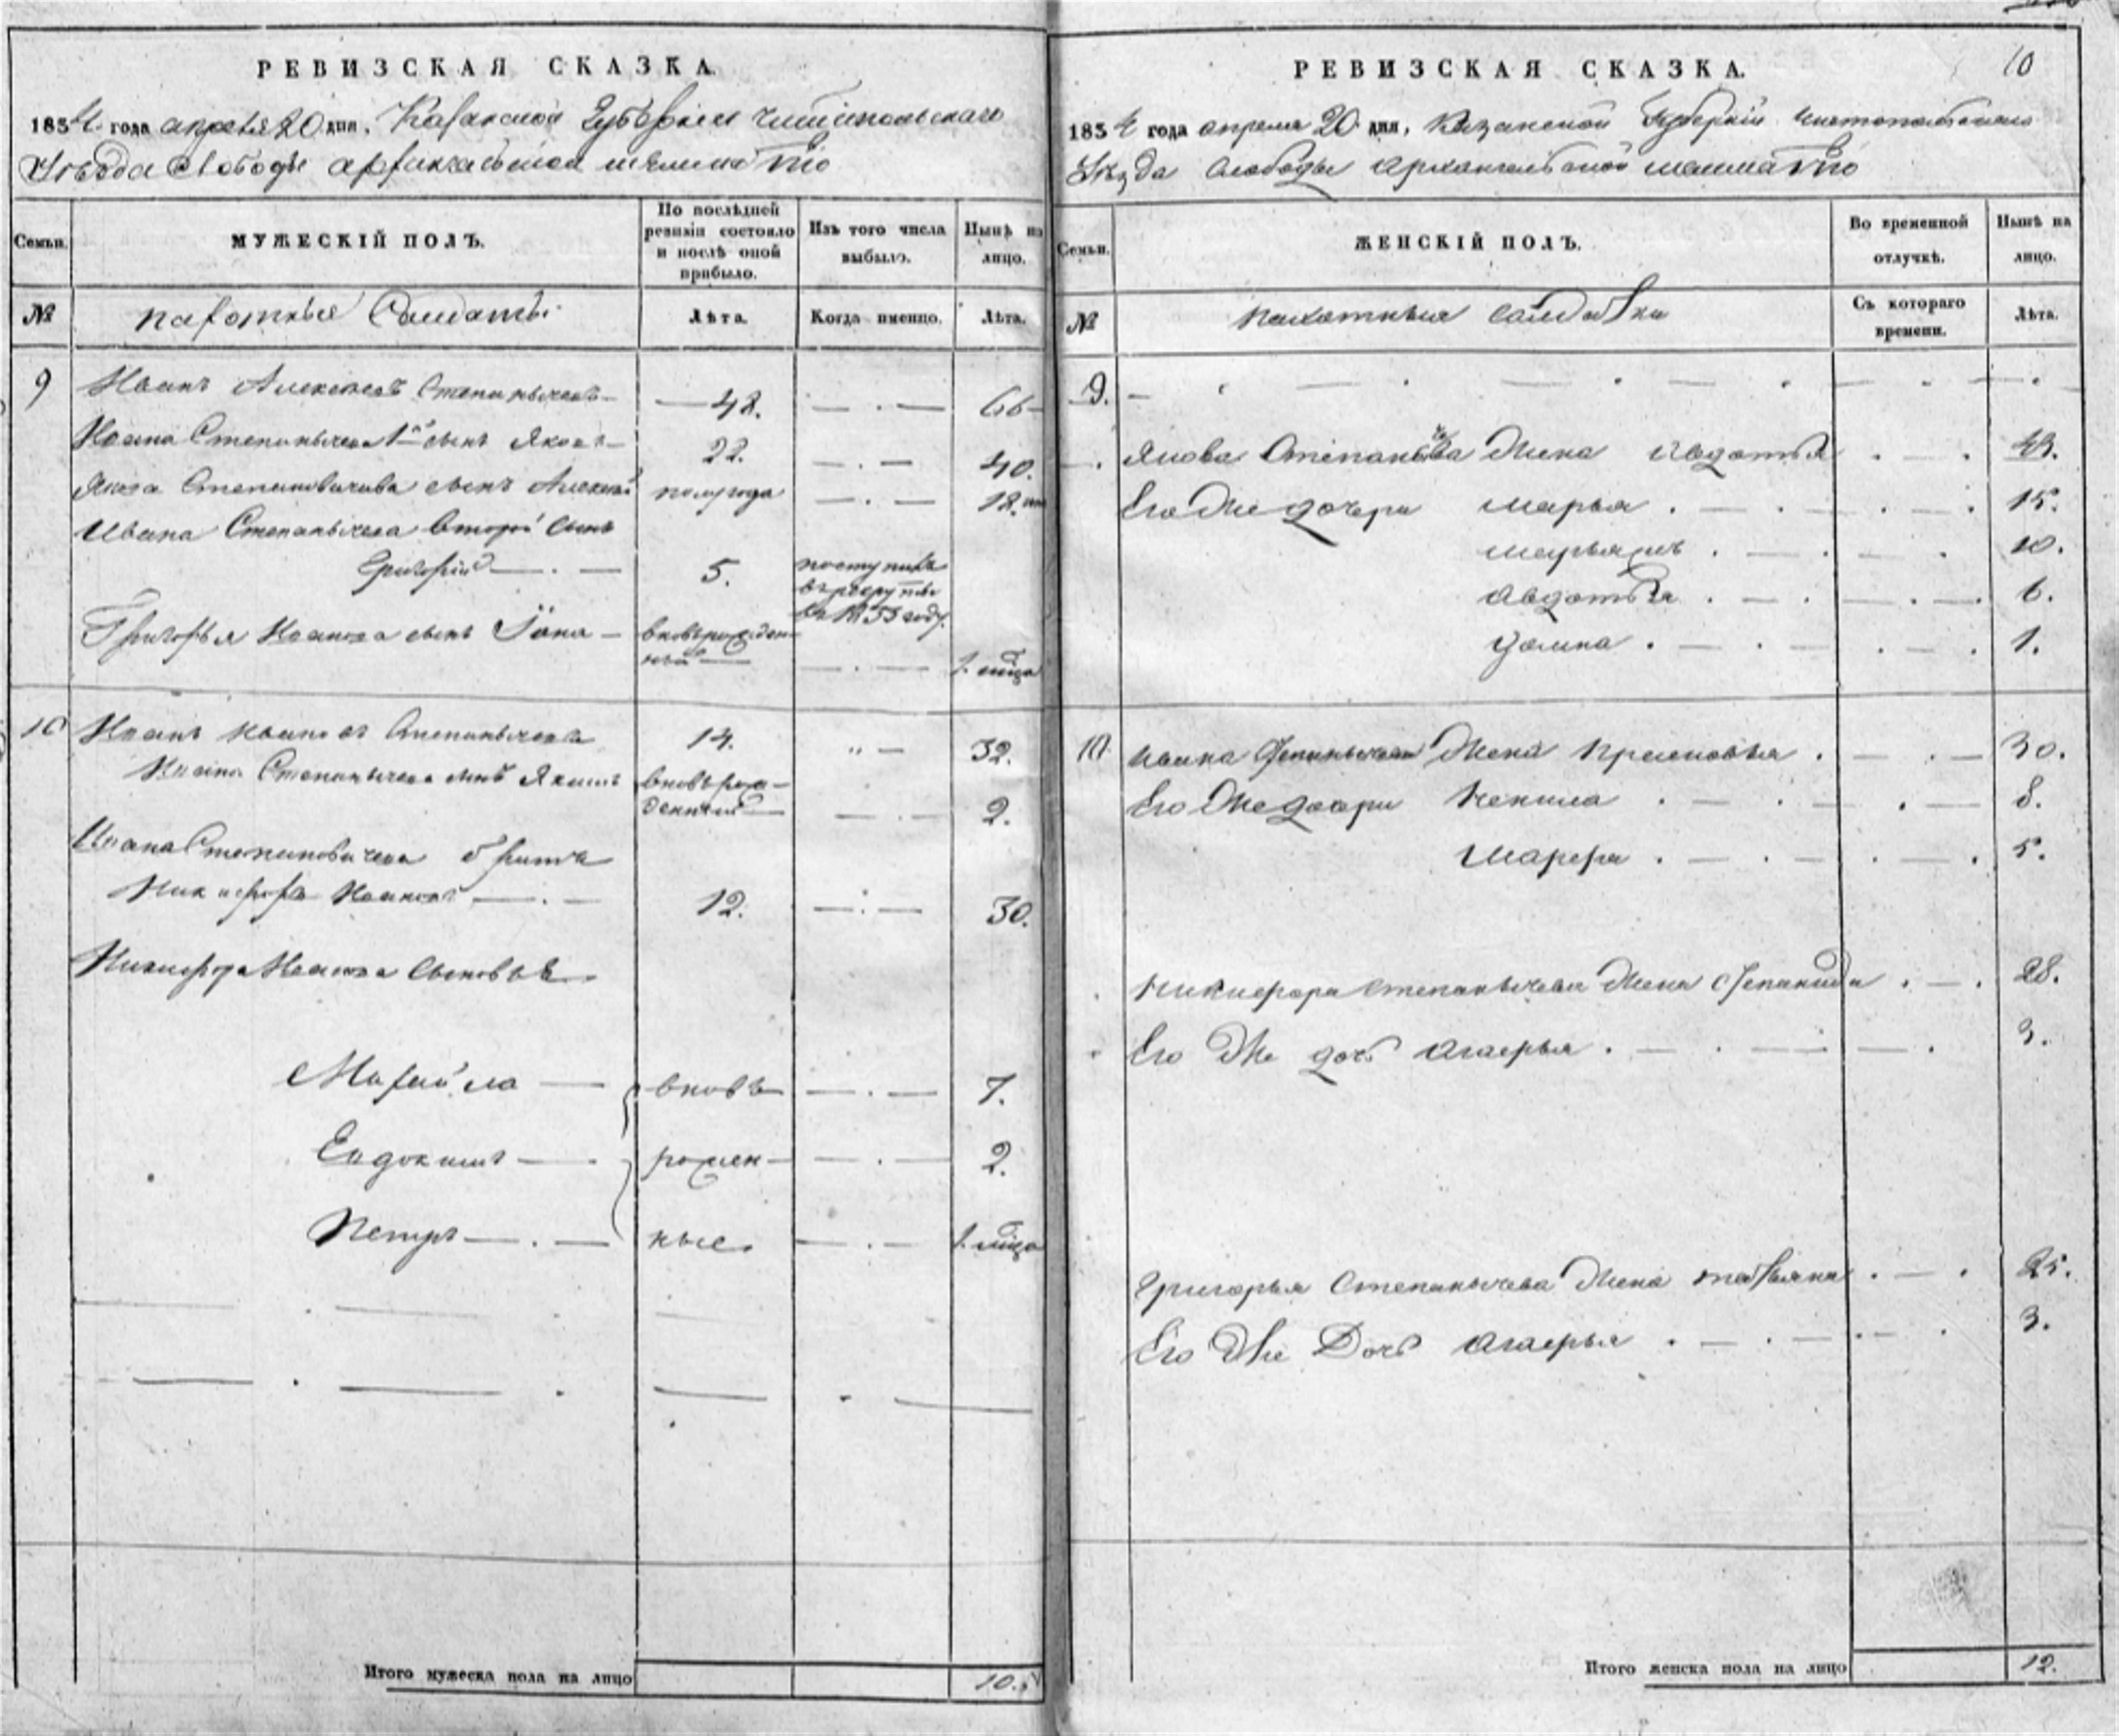 РЕВИЗСКАЯ СКАЗКА.
1854 года апреля 20 дня, Казанской Губернии Чистопольскаго
Уѣзда Слободы Архангельской
Семьи.
МУЖЕСКІЙ ПОЛЪ.
По послѣдней ревизіи состояло и послѣ оной прибыло.
Изъ того числа выбыло.
Нынѣ на лицо.
№
пахотные Солдаты
Лѣта.
Когда именно.
Лѣта.
9
Иванъ Алексеевъ Степанычевъ
48.
66
Ивана Степанычева 1й сынъ Яковъ
22.
40.
Якова Степановичива сынъ Алексей
полугода
18.
Ивана Степанычева второй сынъ
Григорій
5.
поступилъ
въ рекруты
въ 1853 году.
Григорья Иванова сынъ
вновьрожден-
ный
1.
10
Иванъ Ивановъ Степанычевъ
14.
32.
Ивана Степанычева сынъ Якимъ
вновьрож-
денный
2.
Ивана Степановичева братъ
Никифоръ Ивановъ
12.
30.
Никифора Иванова Сыновья
Михайла
вновь
7.
Евдокимъ
рожен-
2.
Петръ
ные.
1.
Итого мужеска пола на лицо
10.
РЕВИЗСКАЯ СКАЗКА.
10
1854 года апреля 20 дня, Казанской Губерніи Чистопольскаго
Уѣзда Слободы Архангельской
Семьи.
ЖЕНСКІЙ ПОЛЪ.
Во временной отлучкѣ.
Нынѣ на лицо.
№
пахотныя солдатки
Съ котораго времени.
Лѣта.
9.
Якова Степанычева Жена Авдотья
43.
Его Же дочери Марья
15.
10.
Авдотья
6.
1.
10
Ивана Степанычева Жена
30.
Его Же дочери
8.
Марфа
5.
Никифора Степанычева Жена Степанида
28.
Его Же дочь Агафья
3.
Григорья Степанычева Жена Татьяна
25.
Его Же Дочь Агафья
3.
Итого женска пола на лицо
12.